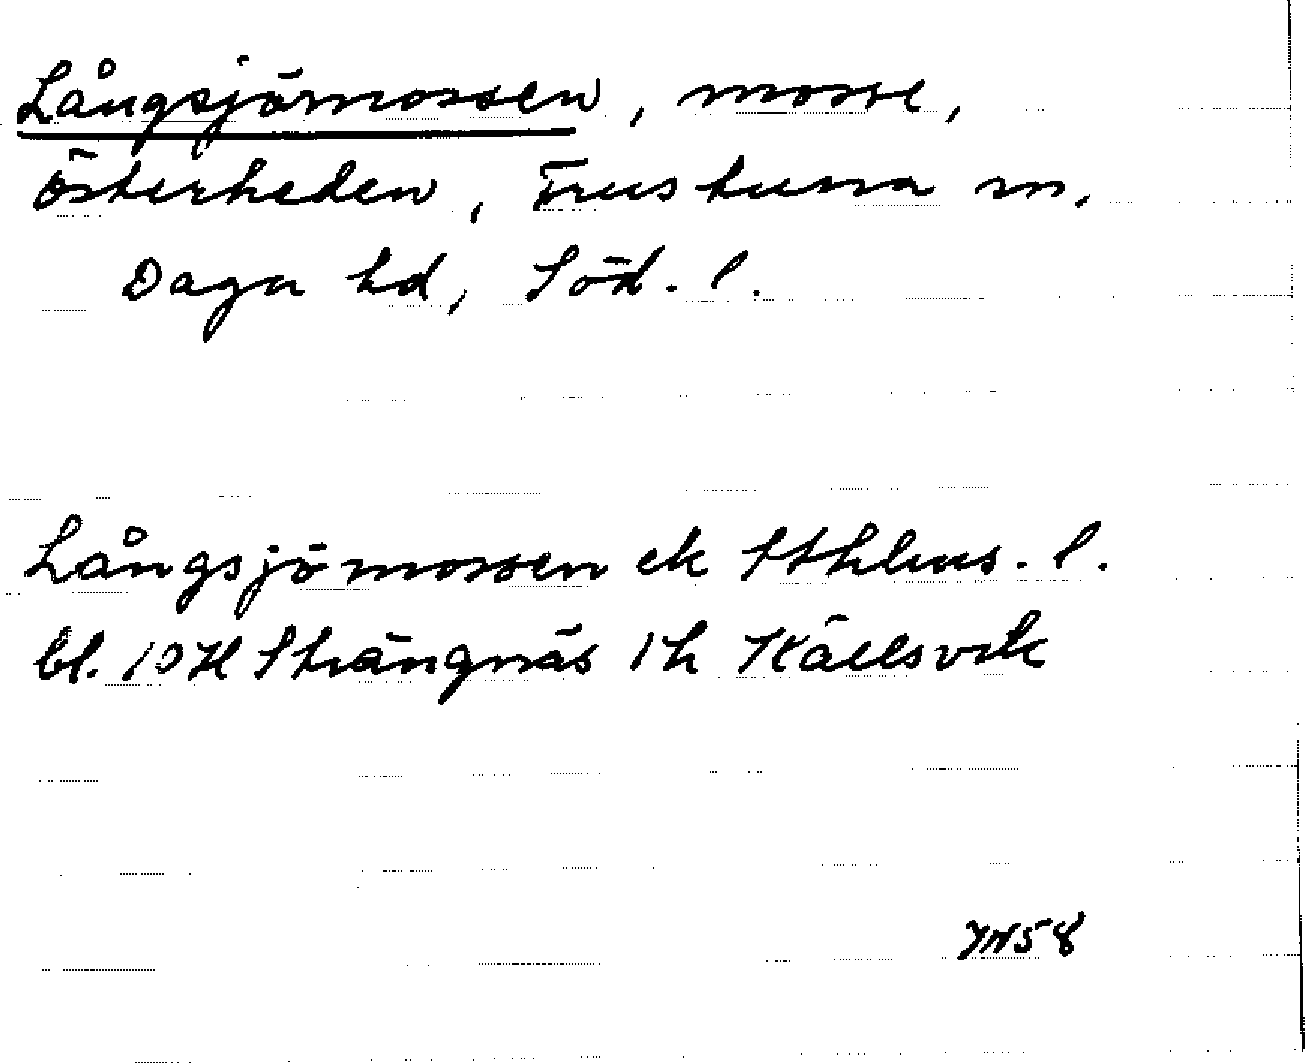 Långsjömossen, mosse,
Österheden, Frustuna sn.
Daga hd, Söd. l.
Långsjömossen ek Sthlms. l.
bl. 10H Strängnäs 1h Källsvik